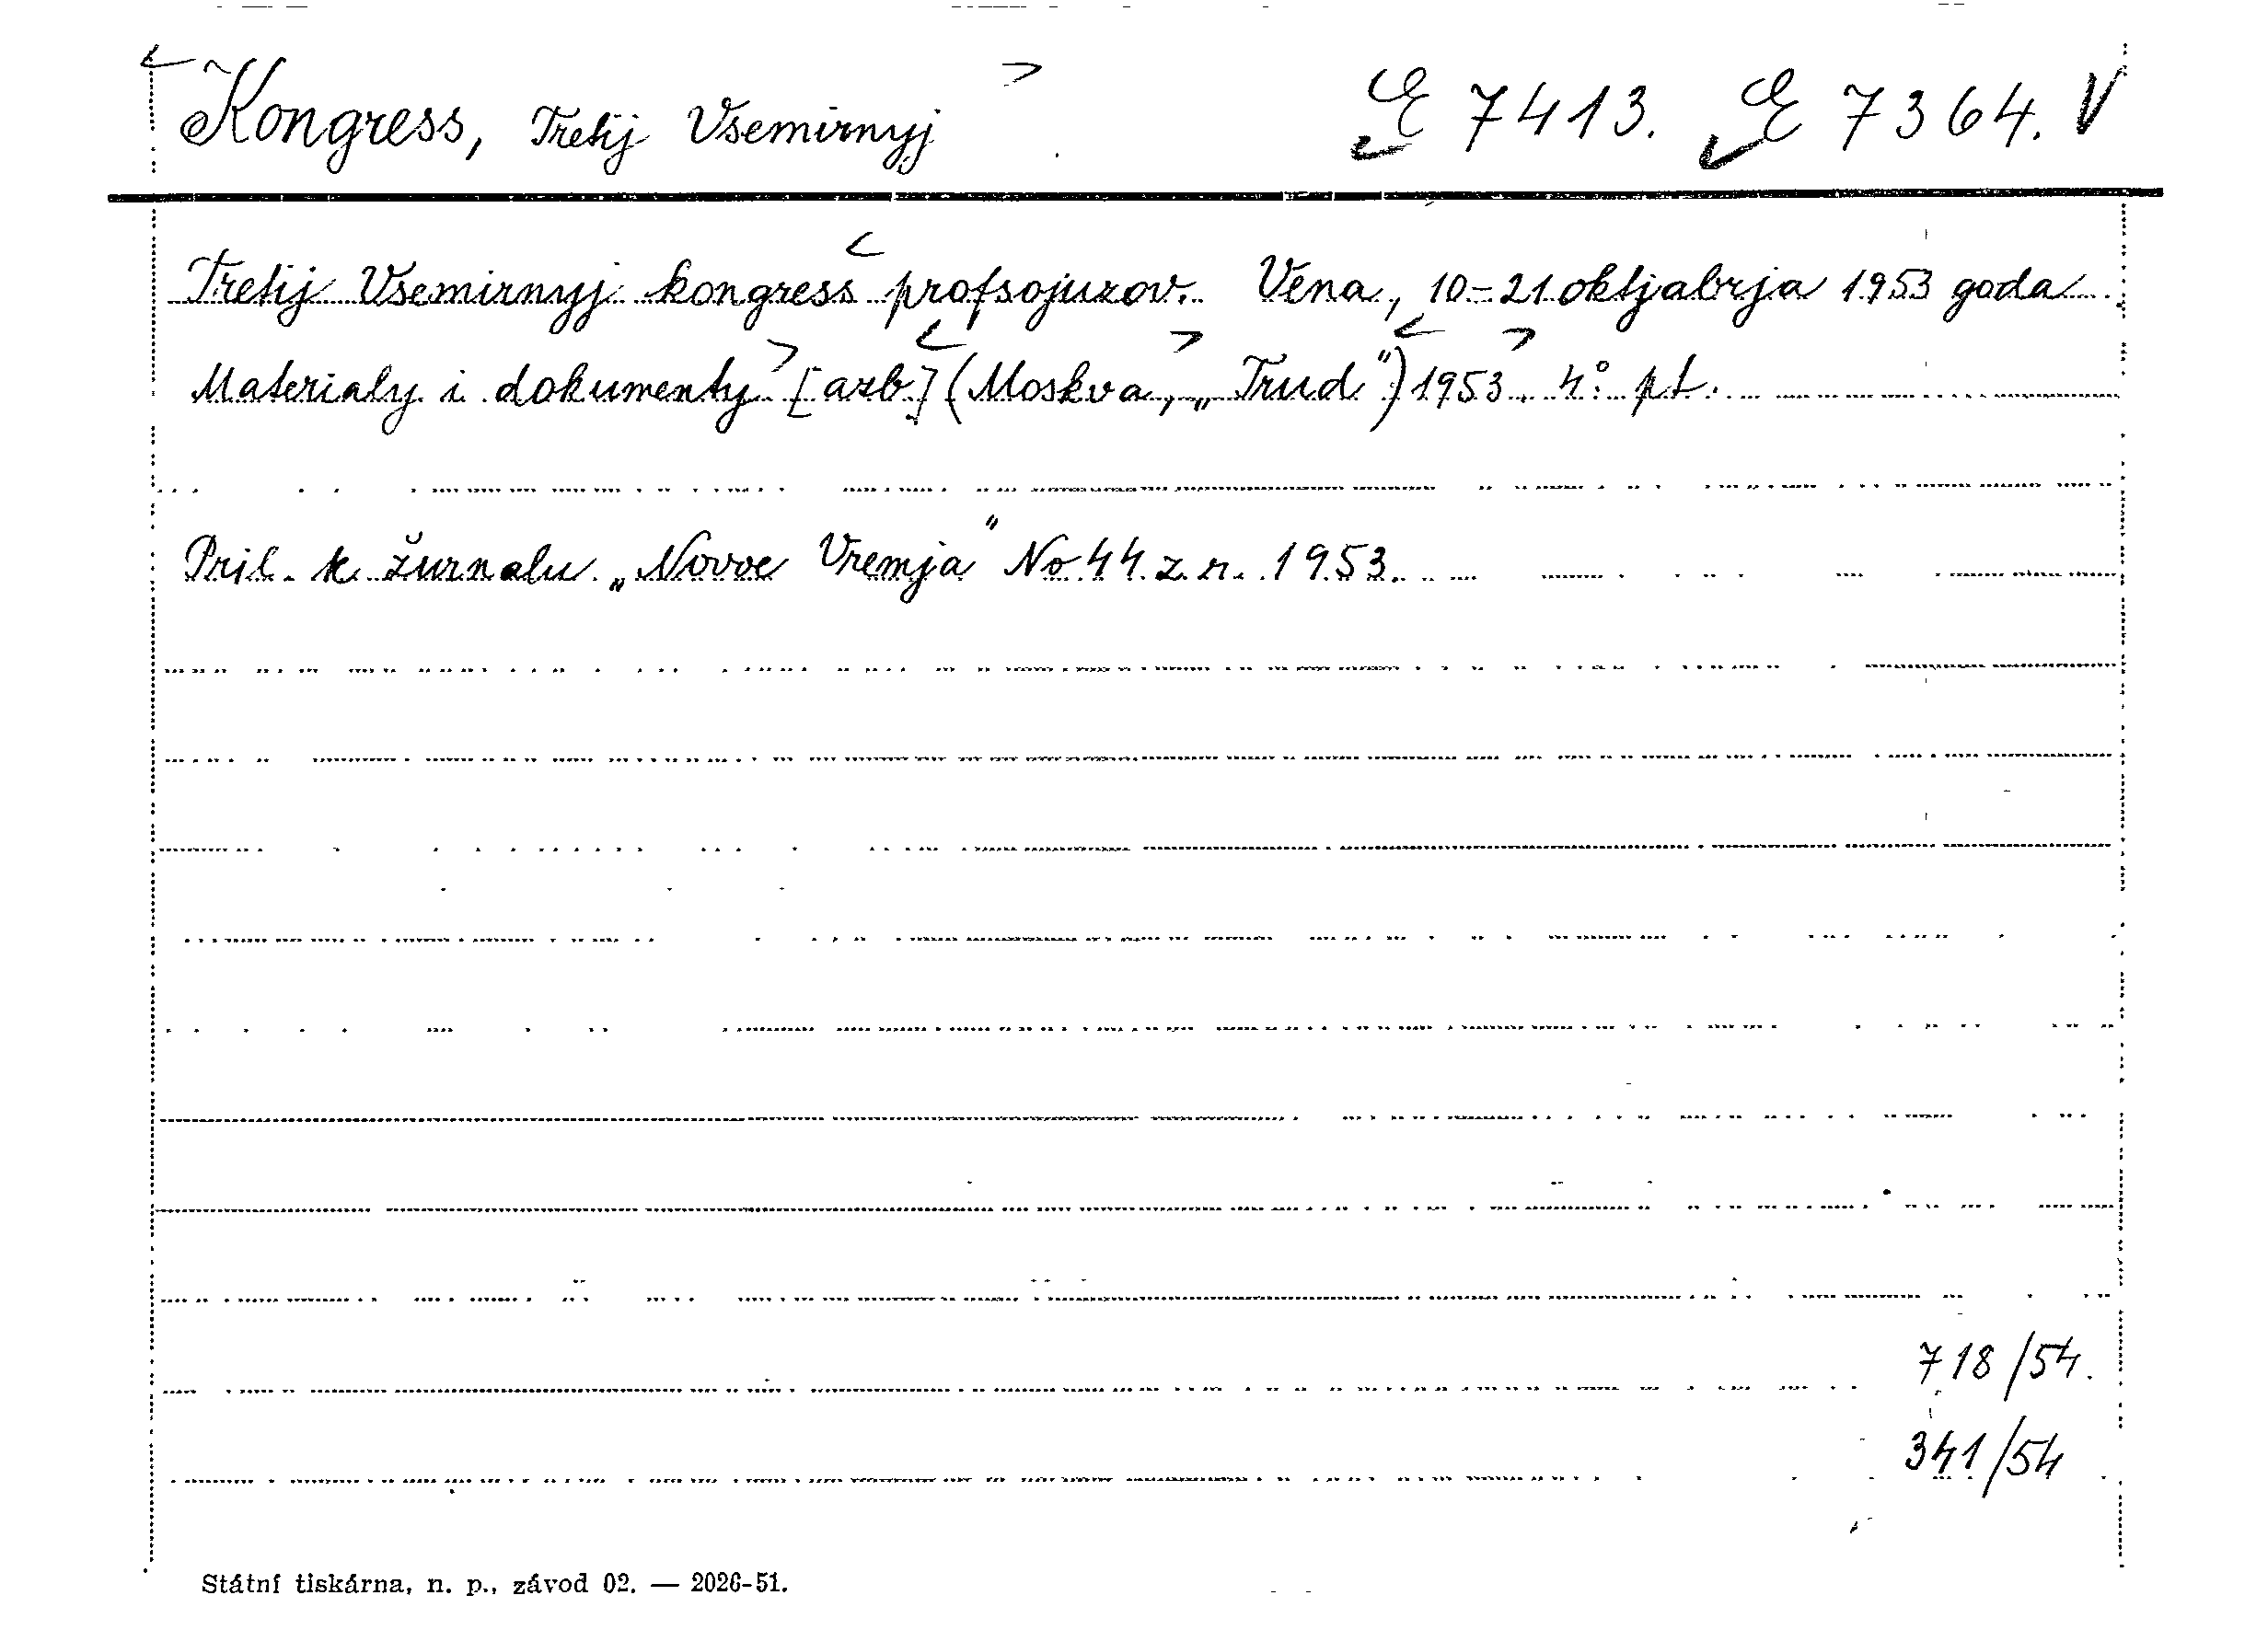 Kongress, Tretij Vsemirnyj E 7413. E 7364. V
Tretij Vsemirnyj kongress profsojuzov. Vena, 10-21 oktjabrja 1953 goda
Materialy i dokumenty [azb] (Moskva, „Trud") 1953. 4° pt.
Pril. k žurnalu „Novoe Vremja" No 44 z r. 1953.
718/54.
341/54
Státní tiskárna, n. p., závod 02. — 2026-51.